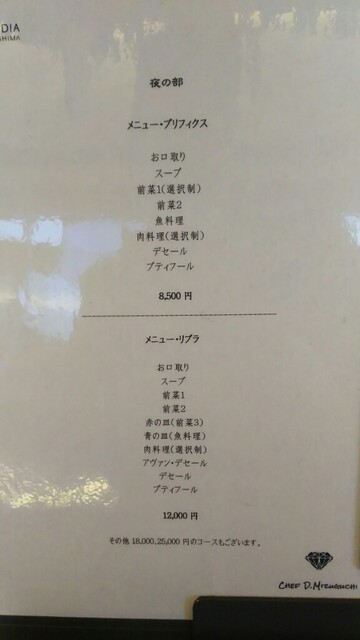 DIA
SHIMA
夜の部
メニュー・プリフィクス
お口取り
スープ
前菜1(選択制)
前菜2
魚料理
肉料理(選択制)
デセール
プティフール
8,500 円
メニュー・リブラ
お口取り
スープ
前菜1
前菜2
赤の皿(前菜3)
青の皿(魚料理)
肉料理(選択制)
アヴァン・デセール
デセール
プティフール
12,000 円
その他 18,000,25,000 円のコースもございます。
CHEF D.MIZUGUCHI